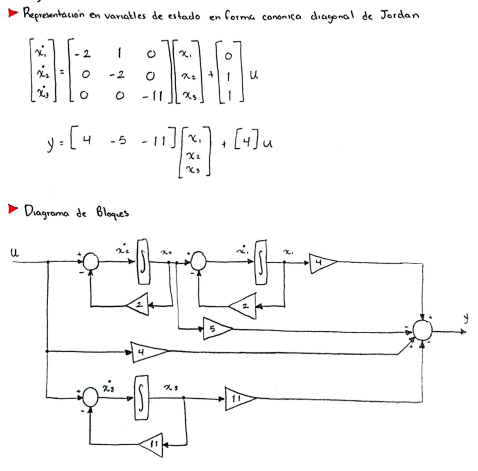 Representación en variables de estado en forma canonica diagonal de Jordan
[ẋ₁ ẋ₂ ẋ₃] = [-2 1 0; 0 -2 0; 0 0 -11] [x₁ x₂ x₃] + [0 1 1] u
y = [4 -5 -11] [x₁ x₂ x₃] + [4] u
Diagrama de Bloques
u + - ẋ₂ ∫ x₂ + - ẋ₁ ∫ x₁ 4
2 2
5 + - + - y
4
+ - ẋ₃ ∫ x₃ 11
11